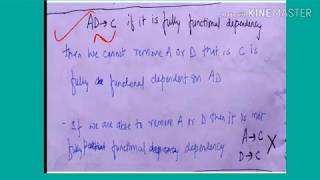 Made with
KINEMASTER
AD → C if it is fully functional dependency
then we cannot remove A or D that is C is
fully functional dependent on AD
- If we are able to remove A or D then it is not
fully functional dependency
A → C
D → C
X